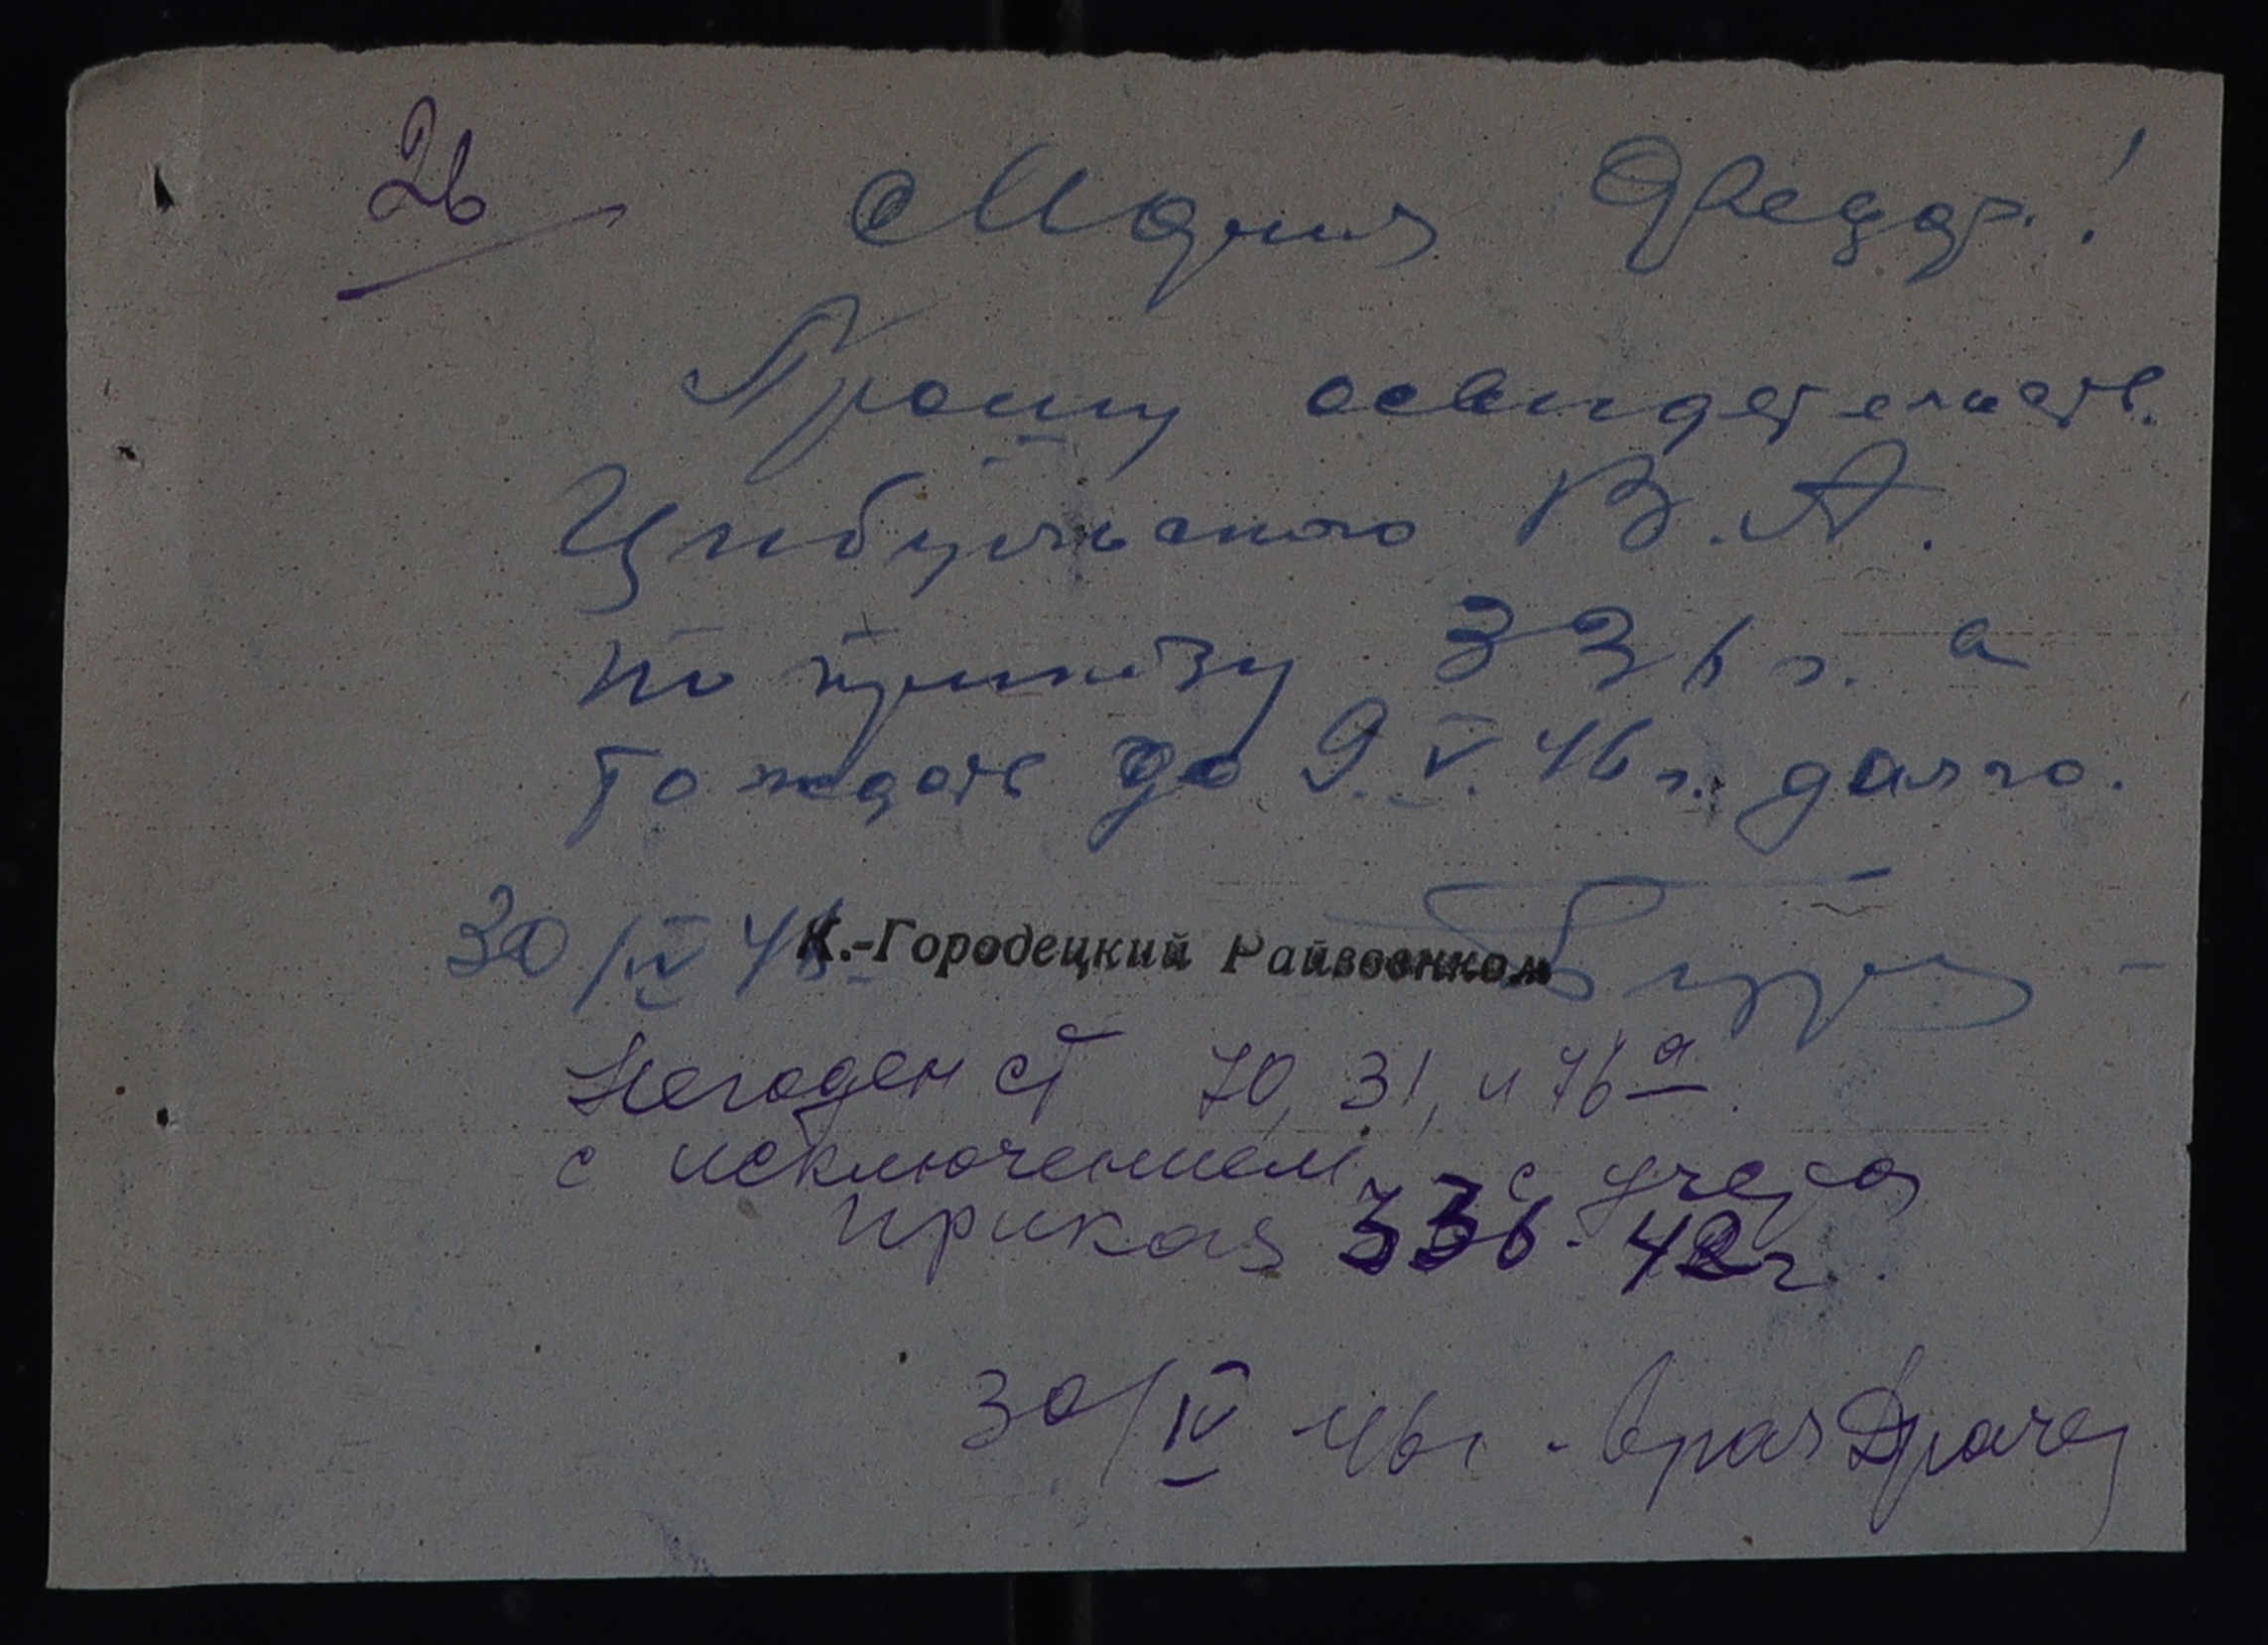 26
Мария Федор.!
Прошу освидетельств.
Цибульского В.А.
по приказу 336 г. а
то ждать до 9.V.46 г. долго.
30/IV 46 К.-Городецкий Райвоенком
Негоден ст 70, 31, и 76 а
с исключением с учета
приказ 336. 42 г.
30/IV 46 г. врач Драчев